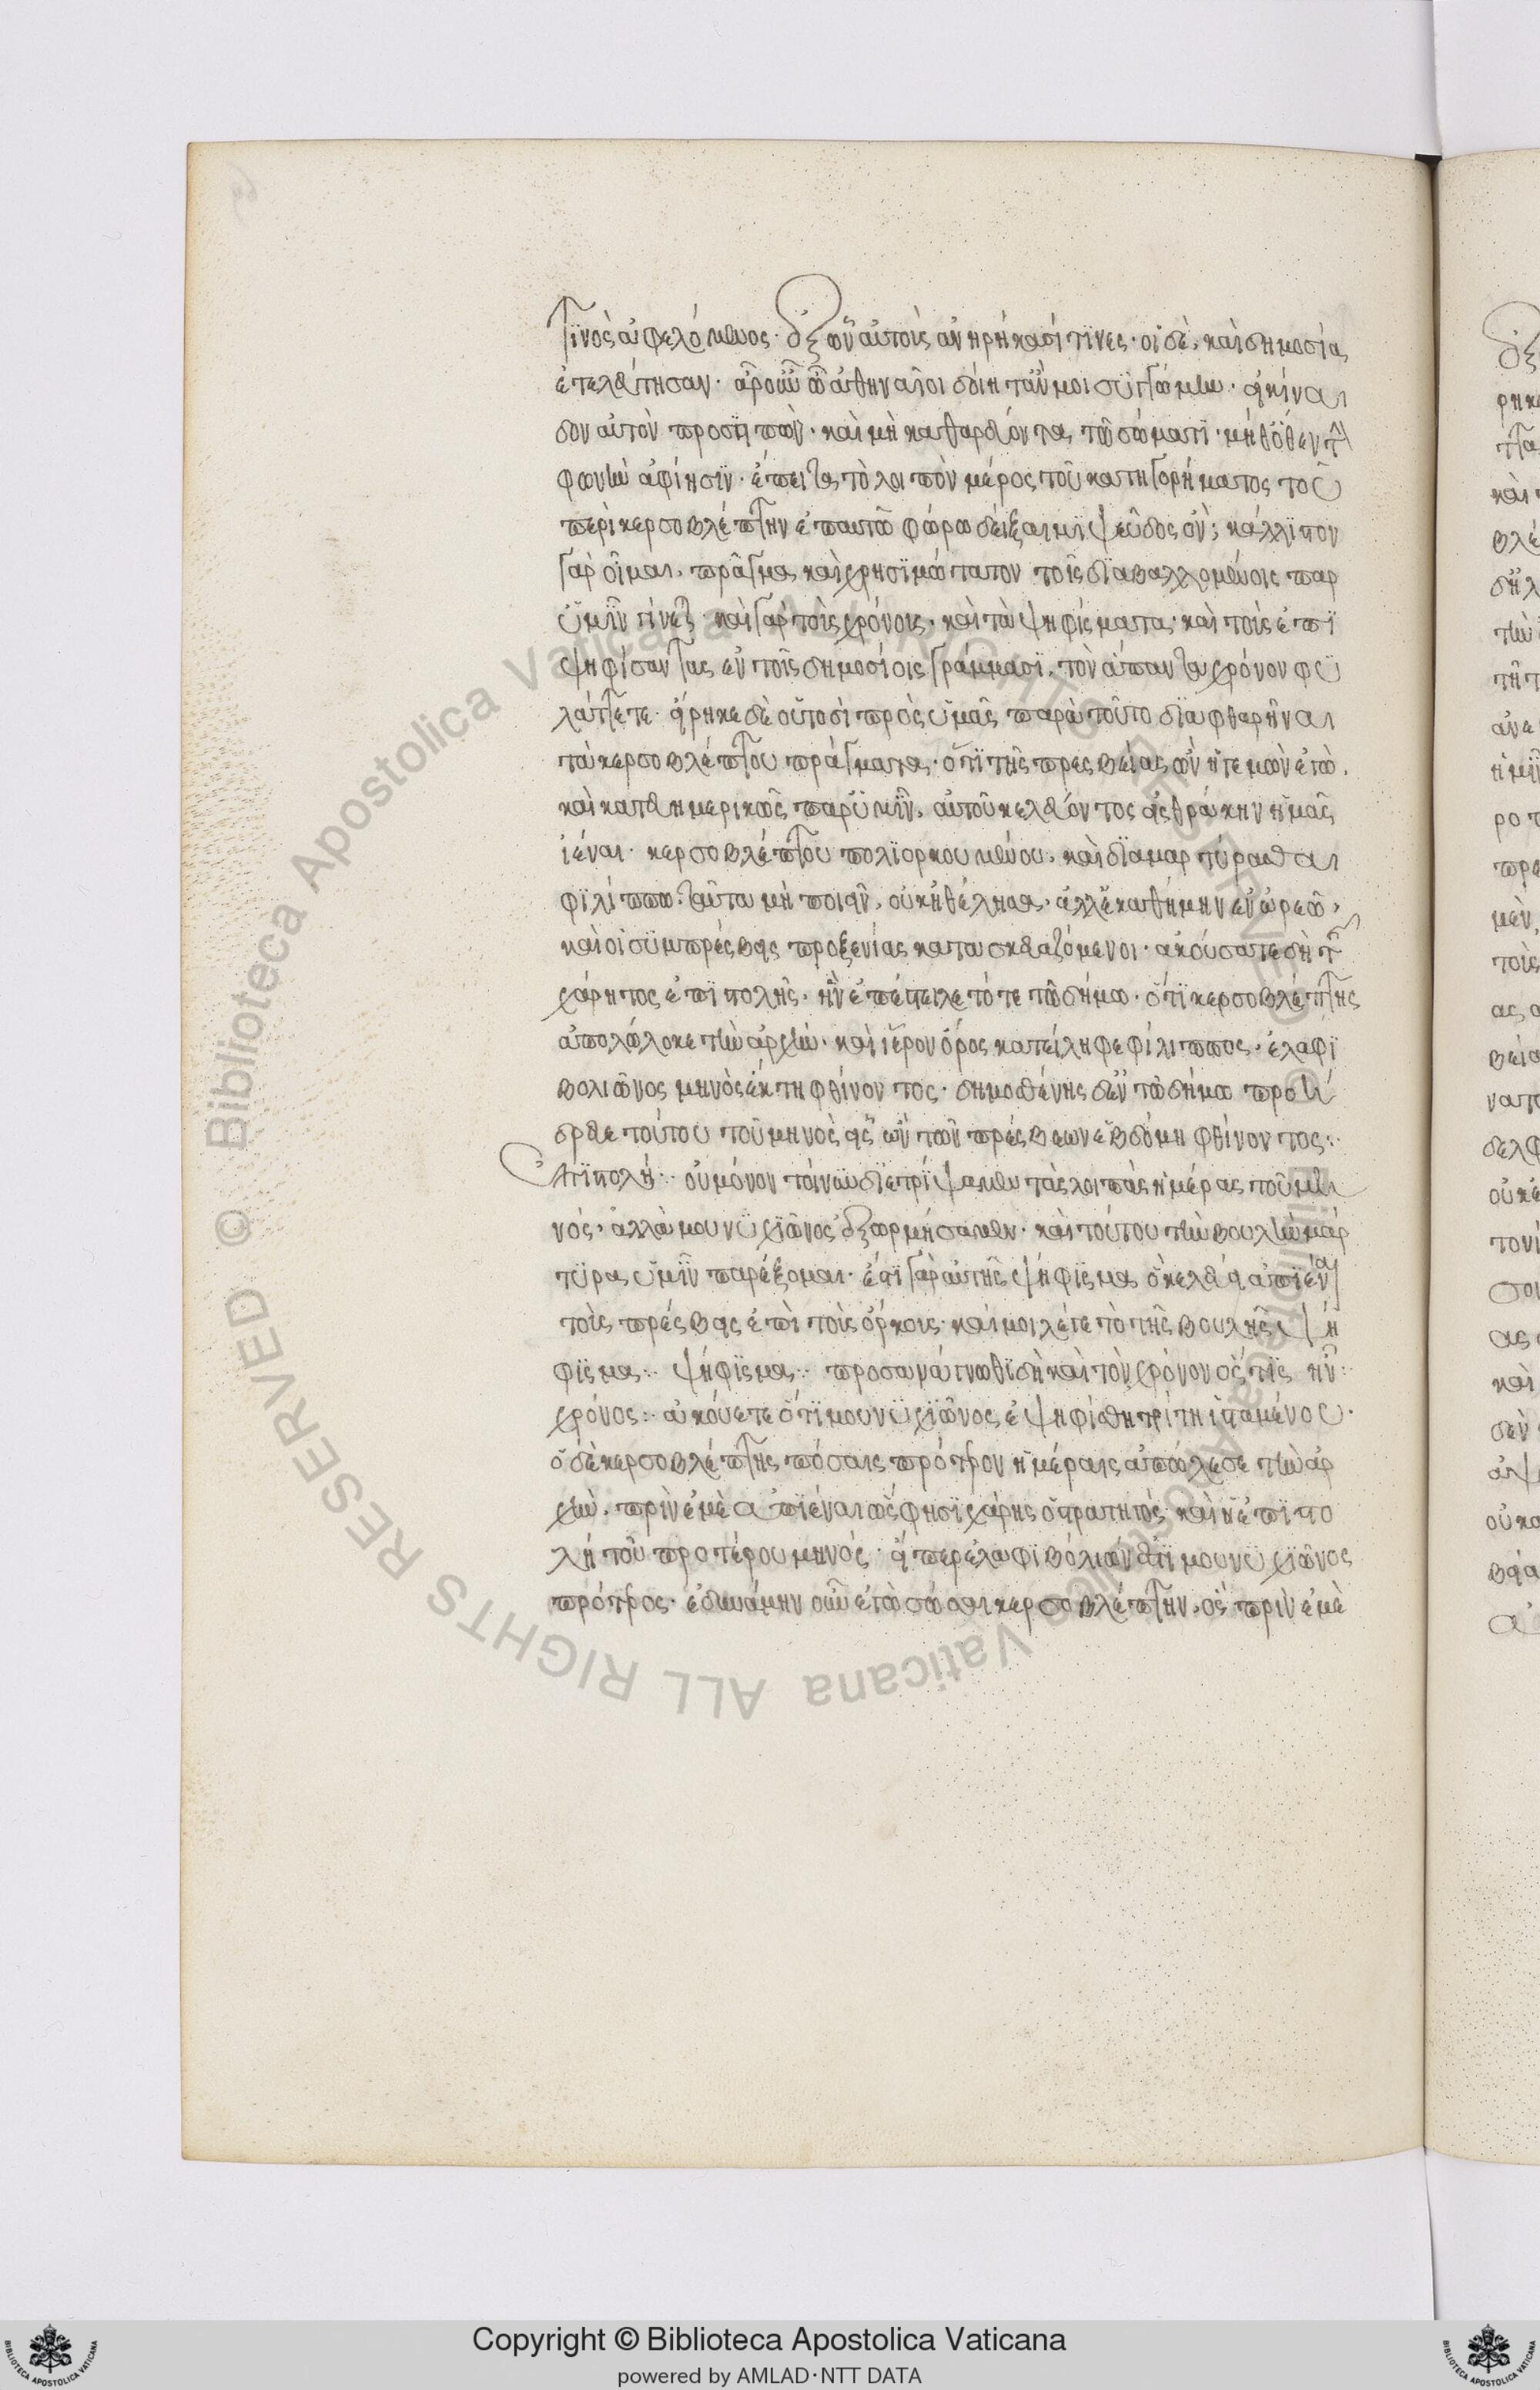 τινὸς ἀφελόμενος· ἐξ ὧν αὐτοὺς ἀνῃρήκασί τινες· οἱ δὲ, καὶ δημοσίᾳ
ἐτελεύτησαν· ἆρ' οὖν ὦ ἀθηναῖοι δόξη ταῦτ' μοι συγγνώμην· κίναι
δον αὐτὸν προσειπὼν· καὶ μὴ καθαρεύοντα τῷ σώματι· μηδ' ὅθεν τὴν
φωνὴν ἀφίησιν· ἔπειτα τὸ λοιπὸν μέρος τοῦ κατηγορήματος τοῦ
περὶ κερσοβλέπτην ἐπ' αυτοφώρω δείξαιμι ψεῦδος ὂν; κάλλιστον
γὰρ οἶμαι, πρᾶγμα καὶ χρησιμώτατον τοῖς διαβαλλομένοις παρ
ὑμῖν γίνεται· καὶ γὰρ τοὺς χρόνους· καὶ τὰ ψηφίσματα· καὶ τοὺς ἐπι
ψηφίσαντας ἐν τοῖς δημοσίοις γράμμασι, τὸν ἅπαντα χρόνον φυ
λάττετε· εἴρηκε δὲ οὑτοσὶ πρὸς ὑμᾶς παρὰ τοῦτο διαφθαρῆναι
τὰ κερσοβλέπτου πράγματα· ὅτι τῆς πρεσβείας ὢν ἡγεμὼν ἐγὼ,
καὶ κατευημερικὼς παρ' ὑμῖν, αὐτοῦ κελεύοντος εἰς θράκην ἡμᾶς
ἰέναι· κερσοβλέπτου πολιορκουμένου, καὶ διαμαρτύρασθαι
φιλίππω ταῦτα μὴ ποιεῖν, οὐκ ἠθέλησα, ἀλλ' ἐκαθήμην ἐν ὠρεῶ,
καὶ οἱ συμπρέσβεις προξενίας κατασκευαζόμενοι· ἀκούσατε δὴ τῆς
χάρητος ἐπιστολῆς· ἣν ἐπέστειλε τότε τῷ δήμω· ὅτι κερσοβλέπτης
ἀπολώλεκε τὴν ἀρχὴν· καὶ ἱερὸν ὄρος κατείληφε φίλιππος· ἐλαφη
βολιῶνος μηνὸς ἕκτη φθίνοντος· δημοσθένης δ' ἐν τῷ δήμω προή
δρευε τούτου τοῦ μηνὸς εἷς ὢν τῶν πρέσβεων ἑβδόμη φθίνοντος:
Ἐπιστολή: οὐ μόνον τοίνυν διετρίψαμεν τὰς λοιπὰς ἡμέρας τοῦ μη
νός, ἀλλὰ μουνυχιῶνος ἐξωρμήσαμεν· καὶ τούτου τὴν βουλὴν μάρ
τυρα ὑμῖν παρέξομαι· ἔστι γὰρ αὐτῆς ψήφισμα ὃ κελεύει ἀπιέναι
τοὺς πρέσβεις ἐπὶ τοὺς ὅρκους· καί μοι λέγε τὸ τῆς βουλῆς ψή
φισμα: ψήφισμα: προσανάγνωθι δὴ καὶ τὸν χρόνον ὅς τις ἦν:
χρόνος: ἀκούετε ὅτι μουνυχιῶνος ἐψηφίσθη τρίτη ἱσταμένου·
ὁ δὲ κερσοβλέπτης πόσαις πρότερον ἡμέραις ἀπώλεσε τὴν ἀρ
χὴν, πρὶν ἐμὲ ἀπιέναι ὥς φησι χάρης ὁ στρατηγὸς καὶ ἡ ἐπιστο
λή τοῦ προτέρου μηνός· εἴπερ ἐλαφιβολιών ἐστι μουνυχιῶνος
πρότερος· ἐδυνάμην οὖν ἐγὼ σῶσαι κερσοβλέπτην, ὃς πρὶν ἐμὲ
Copyright © Biblioteca Apostolica Vaticana
powered by AMLAD·NTT DATA